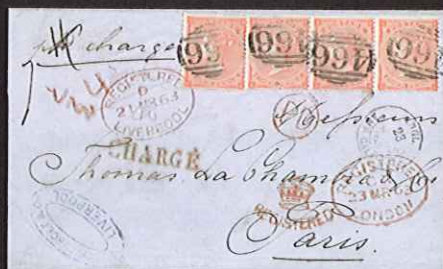 p charge
466 466 466 466
REGISTERED
D
21 MR 63
LIVERPOOL
PD
Messieurs
CHARGÉ
Thomas La Chambre & Co
REGISTERED
23 MR 63
LONDON
REGISTERED
LIVERPOOL
Paris.